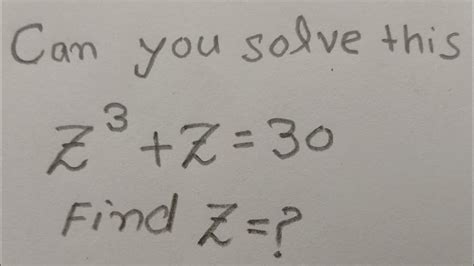 Can you solve this
z³ + z = 30
Find z = ?